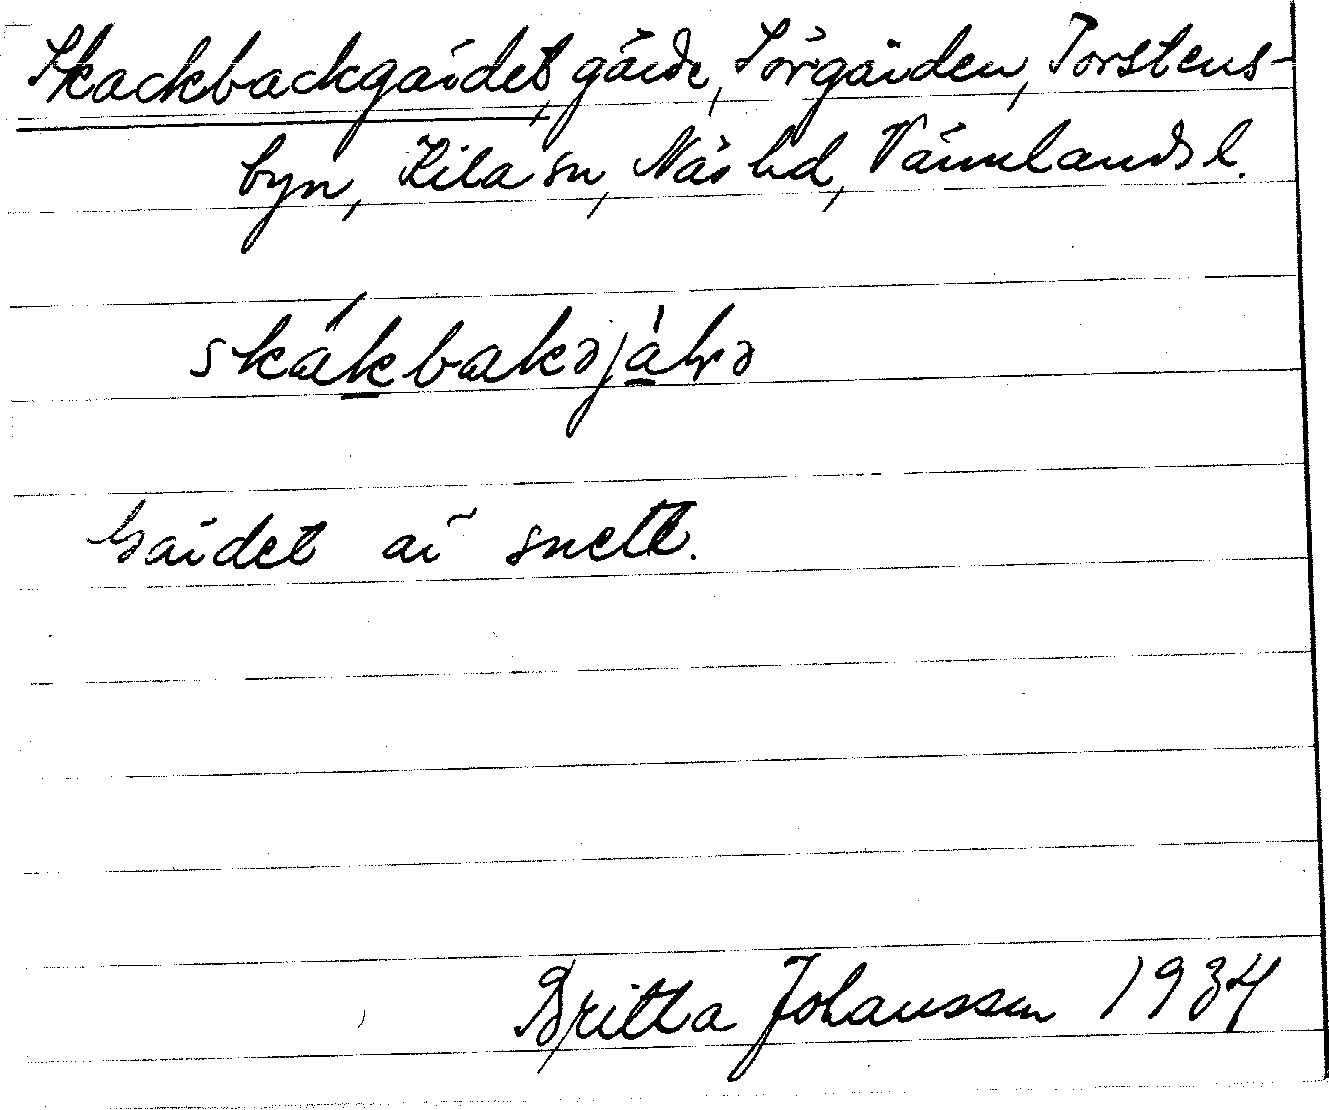 Skackbackgärdet, gärde, Sörgården, Torstens-
byn, Kila sn, Näs hd, Värmlands l.
skákbakəjàḷə
Gärdet är snett.
Britta Johansson 1934